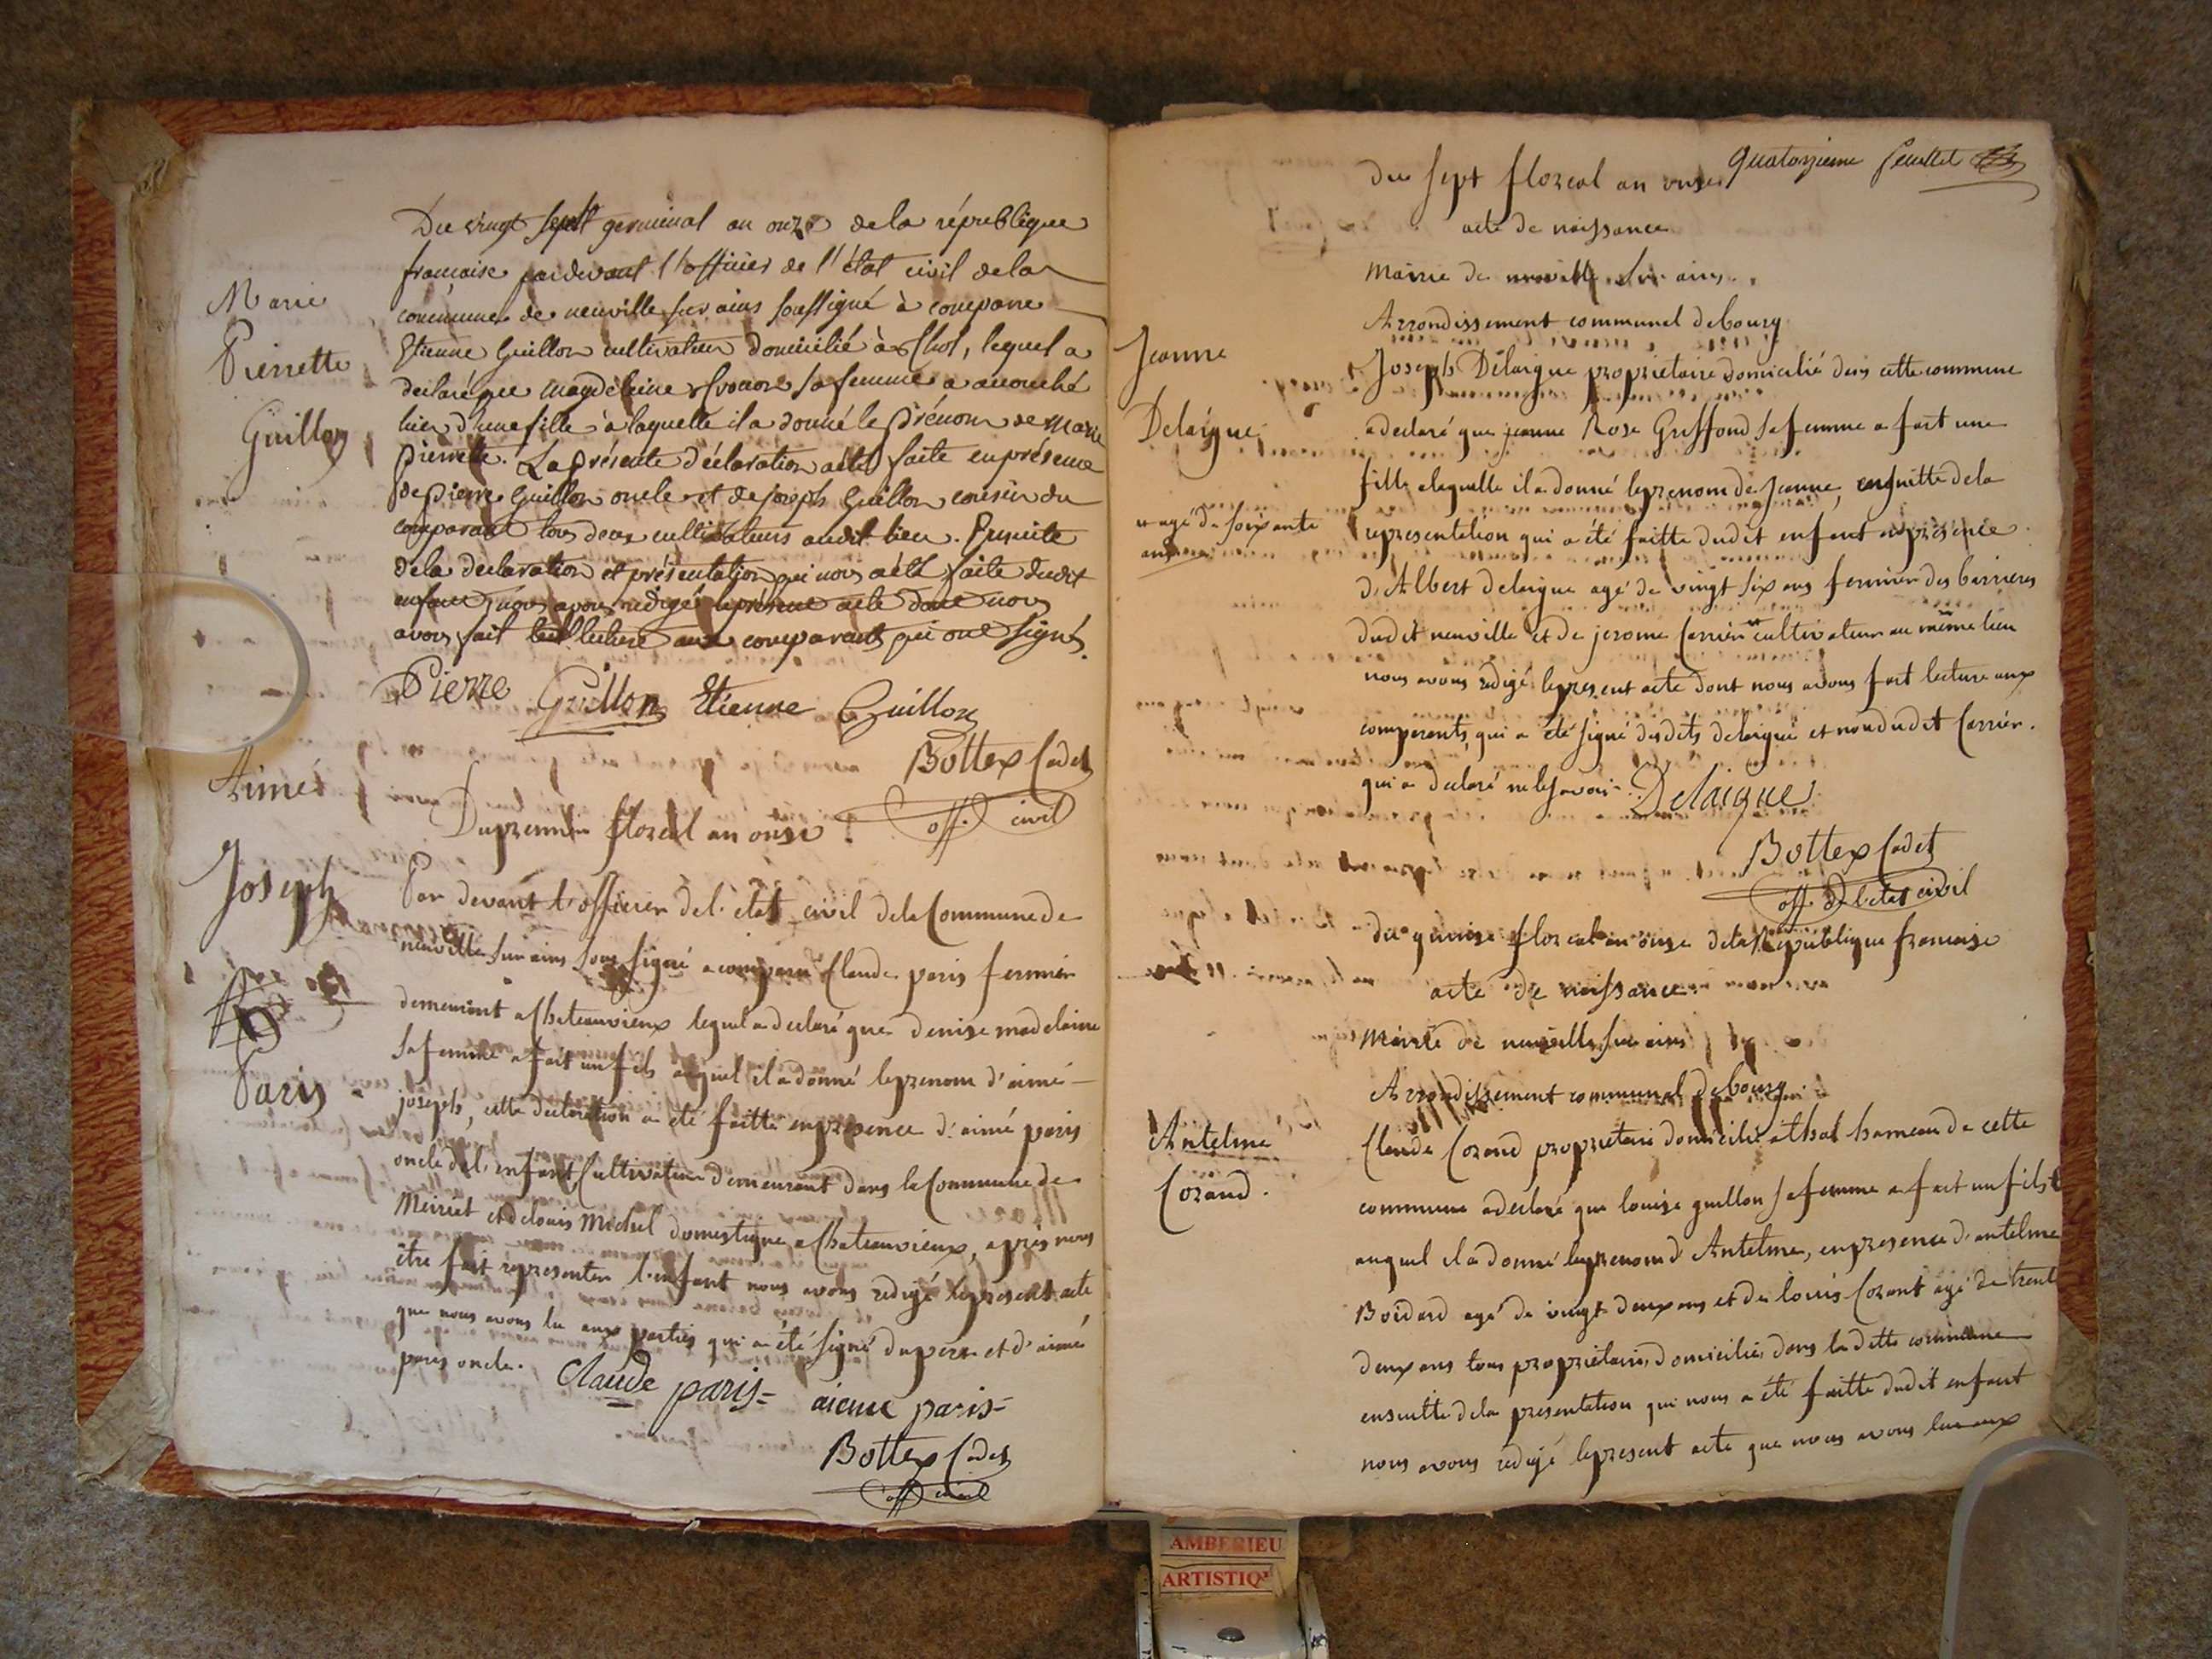 Marie
Pierrette
Guillon
Du vingt sept germinal an onze de la république
française pardevant l'officier de l'état civil de la
commune de neuville sur ains soussigné à comparu
Etienne Guillon cultivateur domicilié à Thol, lequel a
declaré que magdeleine sa femme a accouché
hier d'une fille à laquelle il a donné le prénom de Marie
pierrette. La présente déclaration a été faite en présence
de pierre Guillon oncle et de joseph Guillon cousin du
comparant tous deux cultivateurs audit lieu. Ensuite
de la declaration et présentation qui nous a été faite dudit
enfant, nous avons redigé le présent acte dont nous
avons fait lecture aux comparants qui ont signé.
Pierre Guillon Etienne Guillon
Bottex Cadet
off. civil
Aimé
Joseph
Paris
Du premier floreal an onze
Par devant l'officier de l'état civil de la Commune de
neuville sur ains sous signé a comparu Claude paris fermier
demeurant a Chateauvieux lequel a declaré que denise madelaine
sa femme a fait un fils auquel il a donné le prenom d'aimé
joseph, cette declaration a été faitte en presence d'aimé paris
oncle de l'enfant Cultivateur demeurant dans la Commune de
Meiriat et de louis Michel domestique a Chateauvieux, après nous
être fait représenter l'enfant nous avons redigé le present acte
que nous avons lu aux parties qui a été signé du pere et d'aimé
paris oncle.
Claude paris = aieme paris =
Bottex Cadet
off. civil
quatorzieme feuillet
du sept floreal an onze
acte de naissance
Mairie de neuville sur ains.
Arrondissement communal de bourg
Jeanne
Delaigue
Joseph Delaigue proprietaire domicilié dans cette commune
a declaré que jeanne Rose Griffond sa femme a fait une
fille a laquelle il a donné le prenom de Jeanne, ensuitte de la
x agé de soixante
ans
representation qui a été faitte dudit enfant en présence
d'Albert delaigue agé de vingt six ans fermier des barrieres
dudit neuville et de jerome Carrier x cultivateur au même lieu
nous avons redigé le present acte dont nous avons fait lecture aux
comparents, qui a été signé desdits delaigue et non dudit Carrier.
qui a declaré ne le savoir. Delaigue
Bottex Cadet
off. de l'etat civil
du quinze floreal an onze de la République francaise
acte de naissance
Mairie de neuville sur ains
Arrondissement communal de bourg
Antelme
Corand.
Claude Corand proprietaire domicilié a thol hameau de cette
commune a declaré que louise guillon sa femme a fait un fils
auquel il a donné le prenom d'Antelme, en presence d'antelme
Boidard agé de vingt deux ans et de louis Corant agé de trente
deux ans tous proprietaires domiciliés dans la ditte commune
ensuitte de la presentation qui nous a été faitte dudit enfant
nous avons redigé le present acte que nous avons lu aux
AMBERIEU
ARTISTIQ